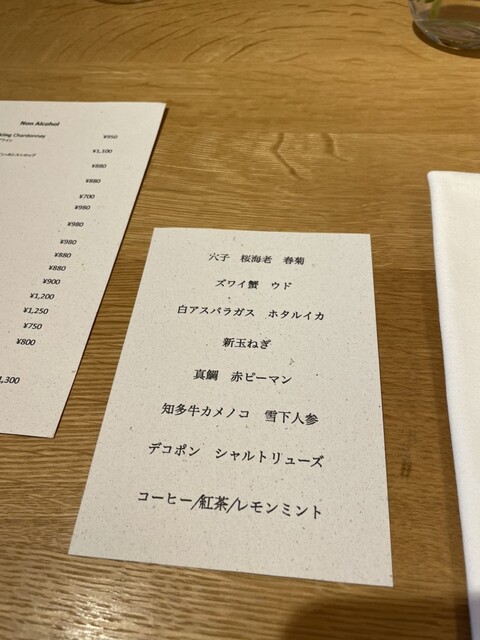 Non Alcohol
Chardonnay
¥950
¥1,100
¥880
¥880
¥700
¥980
¥980
¥980
¥880
¥880
¥900
¥1,200
¥1,250
¥750
¥800
穴子 桜海老 春菊
ズワイ蟹 ウド
白アスパラガス ホタルイカ
新玉ねぎ
真鯛 赤ピーマン
知多牛カメノコ 雪下人参
デコポン シャルトリューズ
コーヒー/紅茶/レモンミント